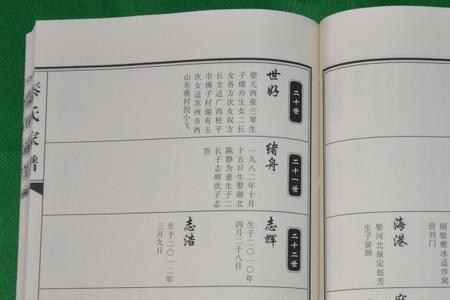 二十世
世好
娶亢西张兰琴生
子绪舟生女二长
女各方次女双方
长女适广西桂平
市佛子村谢有玉
次女适苏州市西
山东蔡村倪小飞
二十一世
绪舟
一九八二年十月
十五日生娶湖北
陈静为妻生子二
长子志辉次子志
浩
二十二世
志辉
生于二〇一〇年
四月二十八日
志浩
生于二〇一二年
三月九日
氏家谱
铜镟雅冰适沙窝
营刘门
海港
娶河北保定赵芳
生子寐圆